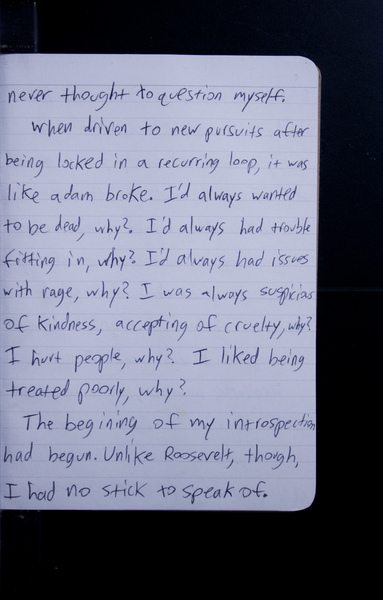 never thought to question myself.
When driven to new pursuits after
being locked in a recurring loop, it was
like a dam broke. I'd always wanted
to be dead, why?. I'd always had trouble
fitting in, why? I'd always had issues
with rage, why? I was always suspicious
of kindness, accepting of cruelty, why?
I hurt people, why? I liked being
treated poorly, why?
The begining of my introspection
had begun. Unlike Roosevelt, though,
I had no stick to speak of.